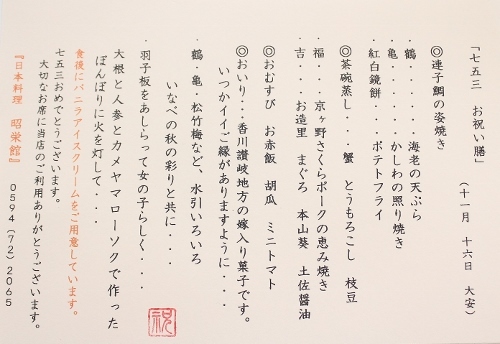 「七五三　お祝い膳」　（十一月　十六日　大安）
◎連子鯛の姿焼き
・鶴・・・・・・海老の天ぷら
・亀・・・・・・かしわの照り焼き
・紅白鏡餅・・・・・ポテトフライ
◎茶碗蒸し・・・蟹　とうもろこし　枝豆
・福・・・京ヶ野さくらポークの恵み焼き
・吉・・・お造里　まぐろ　本山葵　土佐醤油
◎おむすび　お赤飯　胡瓜　ミニトマト
◎おいり・・香川讃岐地方の嫁入り菓子です。
いつかイイご縁がありますように・・・・
・鶴・亀・松竹梅など、水引いろいろ
いなべの秋の彩りと共に・・・・
・羽子板をあしらって女の子らしく・・・・
大根と人参とカメヤマローソクで作った
ぼんぼりに火を灯して・・・・
食後にバニラアイスクリームをご用意しています。
七五三おめでとうございます。
大切なお席に当店のご利用ありがとうございます。
『日本料理　昭栄館』　0594（72）2065
祝